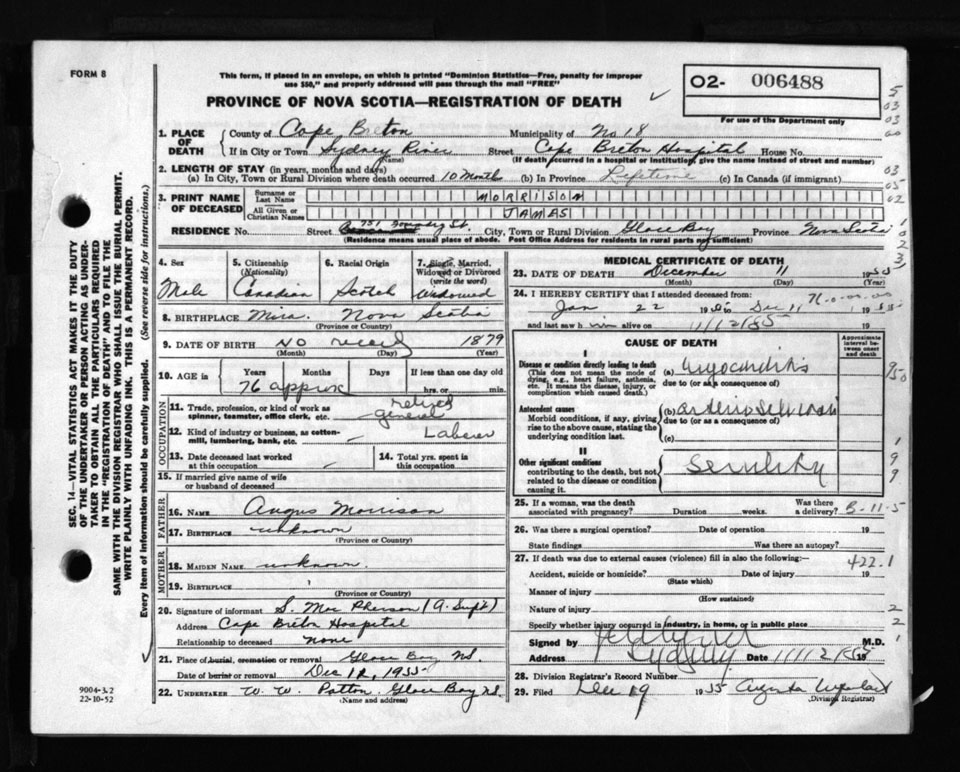 FORM 8
This form, if placed in an envelope, on which is printed "Dominion Statistics—Free, penalty for improper
use $50," and properly addressed will pass through the mail "FREE"
O2- 006488
For use of the Department only
PROVINCE OF NOVA SCOTIA—REGISTRATION OF DEATH
1. PLACE OF DEATH
County of Cape Breton Municipality of No 18
If in City or Town Sydney River Street Cape Breton Hospital House No.
(Name) (If death occurred in a hospital or institution, give the name instead of street and number)
2. LENGTH OF STAY (in years, months and days)
(a) In City, Town or Rural Division where death occurred 10 Month (b) In Province Lifetime (c) In Canada (if immigrant)
3. PRINT NAME OF DECEASED
Surname or Last Name MORRISON
All Given or Christian Names JAMAS
RESIDENCE No. Street 751 St. City, Town or Rural Division Glace Bay Province Nova Scotia
(Residence means usual place of abode. Post Office Address for residents in rural parts not sufficient)
4. Sex Male
5. Citizenship (Nationality) Canadian
6. Racial Origin Scotch
7. Single, Married, Widowed or Divorced (write the word) Widowed
8. BIRTHPLACE Mira. Nova Scotia
(Province or Country)
9. DATE OF BIRTH No record 1879
(Month) (Day) (Year)
10. AGE in Years Months Days If less than one day old
76 approx hrs. or min.
OCCUPATION
11. Trade, profession, or kind of work as spinner, teamster, office clerk, etc. retired general
12. Kind of industry or business, as cotton-mill, lumbering, bank, etc. Laberer
13. Date deceased last worked at this occupation
14. Total yrs. spent in this occupation
15. If married give name of wife or husband of deceased
FATHER
16. NAME Angus Morrison
17. BIRTHPLACE unknown
(Province or Country)
MOTHER
18. MAIDEN NAME unknown
19. BIRTHPLACE
(Province or Country)
20. Signature of informant S. Mac Pherson (A. Supt)
Address Cape Breton Hospital
Relationship to deceased none
21. Place of burial, cremation or removal Glace Bay NS.
Date of burial or removal Dec 12, 1955
22. UNDERTAKER W. W. Patton. Glace Bay NS.
(Name and address)
MEDICAL CERTIFICATE OF DEATH
23. DATE OF DEATH December 11 1955
(Month) (Day) (Year)
24. I HEREBY CERTIFY that I attended deceased from:
Jan 22 1955 to Dec 11 1955
and last saw him alive on 11/12/55 19
CAUSE OF DEATH
Approximate interval between onset and death
I
Disease or condition directly leading to death
(This does not mean the mode of dying, e.g., heart failure, asthenia, etc. It means the disease, injury, or complication which caused death.)
(a) Myocarditis
due to (or as a consequence of)
Antecedent causes
Morbid conditions, if any, giving rise to the above cause, stating the underlying condition last.
(b) Arteriosclerosis
due to (or as a consequence of)
(c)
II
Other significant conditions
contributing to the death, but not related to the disease or condition causing it.
Senility
25. If a woman, was the death associated with pregnancy? Duration weeks. Was there a delivery?
26. Was there a surgical operation? Date of operation 19
State findings Was there an autopsy?
27. If death was due to external causes (violence) fill in also the following:
422.1
Accident, suicide or homicide? Date of injury 19
(State which)
Manner of injury
(How sustained)
Nature of injury
Specify whether injury occurred in industry, in home, or in public place
Signed by M.D.
Address Sydney Date 11/12/55 19
28. Division Registrar's Record Number
29. Filed Dec 19 1955
(Division Registrar)
SEC. 14—VITAL STATISTICS ACT MAKES IT THE DUTY
OF THE UNDERTAKER OR PERSON ACTING AS UNDER-
TAKER TO OBTAIN ALL THE PARTICULARS REQUIRED
IN THE "REGISTRATION OF DEATH" AND TO FILE THE
SAME WITH THE DIVISION REGISTRAR WHO SHALL ISSUE THE BURIAL PERMIT.
WRITE PLAINLY WITH UNFADING INK. THIS IS A PERMANENT RECORD.
Every item of information should be carefully supplied. (See reverse side for instructions.)
9004-3.2
22-10-52